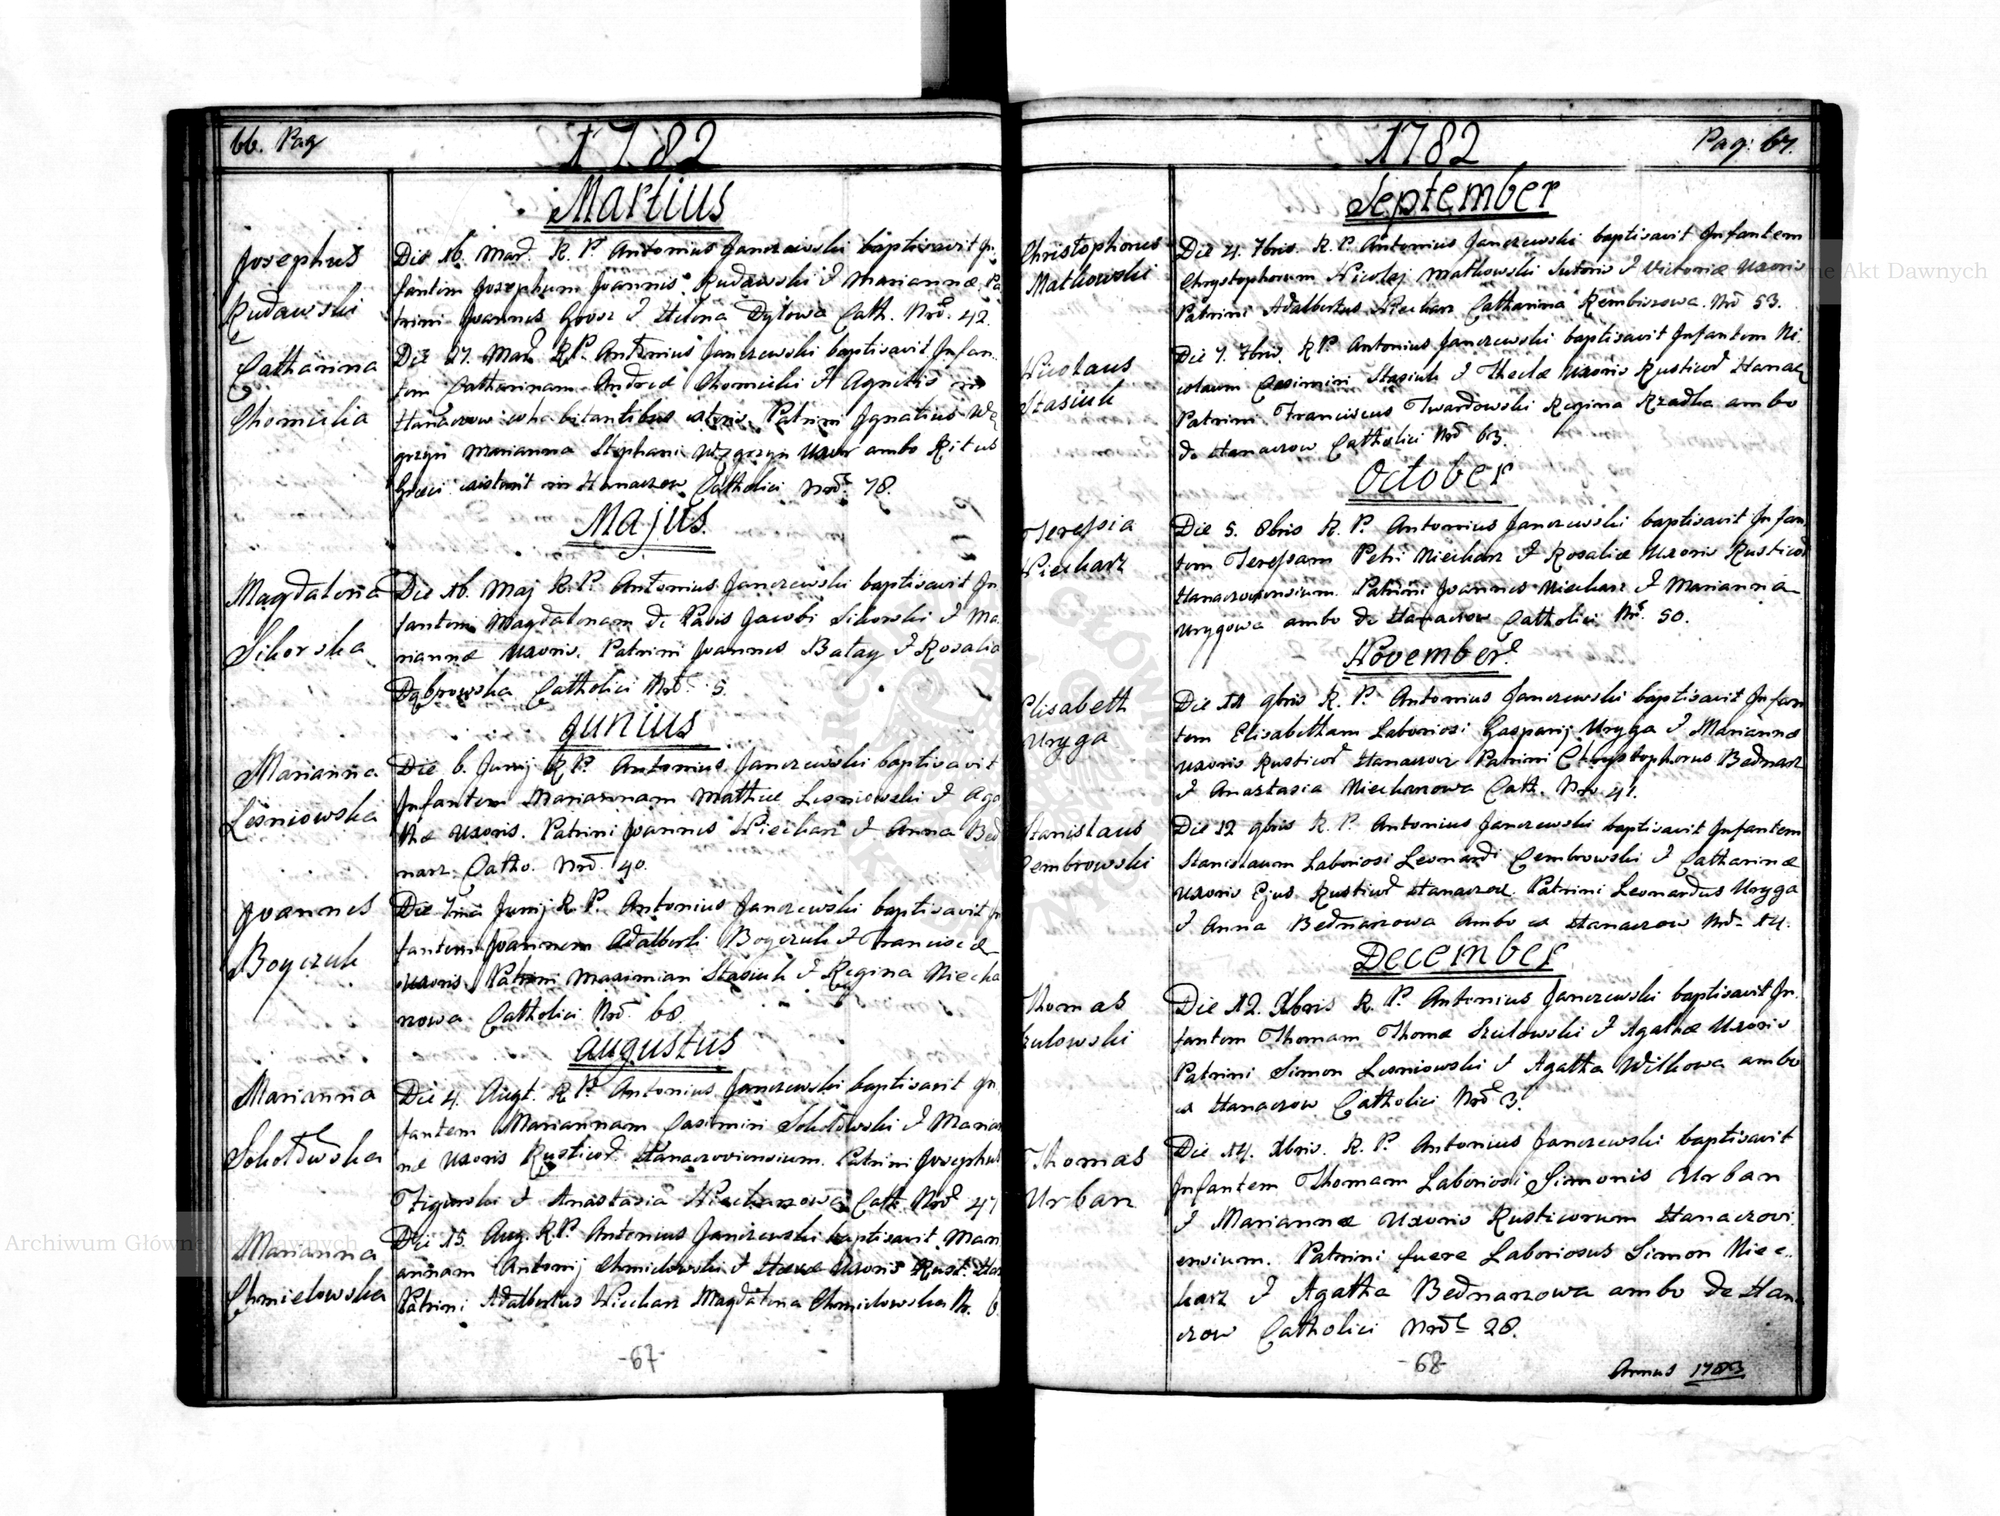 66. Pag
1782
Martius
Josephus
Rudawski
Die 16. Mar. R. P. Antonius Janczewski baptisavit In
fantem Josephum Joannis Rudawski & Mariannæ Pa
trini Joannes Gbvor & Helena Dylowa Cath. Nrō. 42.
Catharina
Chomicka
Die 27. Mar. R. P. Antonius Janczewski baptisavit Infan
tem Catharinam Andreæ Chomicki & Agnetis in
Hanaczow Patrini Ignatius We
grzyn Marianna Stephani Węgrzyn Uxor ambo Ritus
Græci existunt in Hanaczow Catholici Nrō. 78.
Majus.
Magdalena
Sikorska
Die 16. Maj R. P. Antonius Janczewski baptisavit In
fantem Magdalenam de Pasis Jacobi Sikorski & Ma
riannæ Uxoris. Patrini Joannes Batay & Rosalia
Dąbrowska Catholici Nrō. 5.
Junius
Marianna
Lesniowska
Die 6. Junij R. P. Antonius Janczewski baptisavit
Infantem Mariannam Mathiæ Lesniowski & Aga
thæ Uxoris. Patrini Joannes Niecharz & Anna Bed
narz. Catho. Nrō. 40.
Joannes
Boyczuk
Die 7ma Junij R. P. Antonius Janczewski baptisavit In
fantem Joannem Adalberti Boyczuk & Franciscæ
Uxoris Patrini Maximian Stasiuk & Regina Niecha
rzowa Catholici Nrō. 68.
Augustus
Marianna
Sokołowska
Die 4. Augt. R. P. Antonius Janczewski baptisavit In
fantem Mariannam Casimiri Sokołowski & Marian
næ Uxoris Rusticor. Hanaczoviensium. Patrini Josephus
Figurski & Anastasia Niecharzowa Cath. Nrō 47
Marianna
Chmielowska
Die 15. Aug. R. P. Antonius Janczewski baptisavit Mari
annam Antonij Chmielowski & Uxoris Rust. Han
Patrini Adalbertus Niecharz Magdalena Chmielowska N. 6
-67-
1782
Pag: 67.
September
Christophorus
Matkowski
Die 4. 7bris. R. P. Antonius Janczewski baptisavit Infantem
Chrystophorum Nicolaj Matkowski Sutoris & Victoriæ Uxoris
Patrini Adalbertus Niecharz Catharina Rembiszowa. Nrō 53.
Nicolaus
Stasiuk
Die 7. 7bris. R. P. Antonius Janczewski baptisavit Infantem Ni
colaum Casimiri Stasiuk & Theclæ Uxoris Rusticor Hanacz
Patrini Franciscus Twardowski Regina Rzadka ambo
de Hanaczow Catholici Nrō 63.
October
Teressia
Niecharz
Die 5. 8bris R. P. Antonius Janczewski baptisavit Infan
tem Teressam Petri Niecharz & Rosaliæ Uxoris Rusticor
Hanaczoviensium. Patrini Joannes Niecharz & Marianna
Urygowa ambo de Hanaczow Catholici Nr. 50.
November.
Elisabeth
Uryga
Die 11 9bris R. P. Antonius Janczewski baptisavit Infan
tem Elisabetham Laboriosi Gasparij Uryga & Mariannæ
Uxoris Rusticor Hanaczov Patrini Chrystophorus Bednarz
& Anastasia Niecharzowa Cath. Nro. 41.
Stanislaus
Cembrowski
Die 12 9bris R. P. Antonius Janczewski baptisavit Infantem
Stanislaum Laboriosi Leonardi Cembrowski & Catharinæ
Uxoris Ejus Rusticor Hanaczov. Patrini Leonardus Uryga
& Anna Bednarzowa Ambo ex Hanaczow Nrō. 14.
December
Thomas
Szulowski
Die 12. Xbris R. P. Antonius Janczewski baptisavit In
fantem Thomam Thomæ Szulowski & Agathæ Uxoris
Patrini Simon Lesniowski & Agatha Wilkowa ambo
ex Hanaczow Catholici Nrō 3.
Thomas
Urban
Die 14. Xbris. R. P. Antonius Janczewski baptisavit
Infantem Thomam Laboriosi Simonis Urban
& Mariannæ Uxoris Rusticorum Hanaczovi
ensium. Patrini fuere Laboriosus Simon Nie
harz & Agatha Bednarzowa ambo de Hana
czow Catholici Nrō 28.
-68-
Annus 1783
Archiwum Główne Akt Dawnych